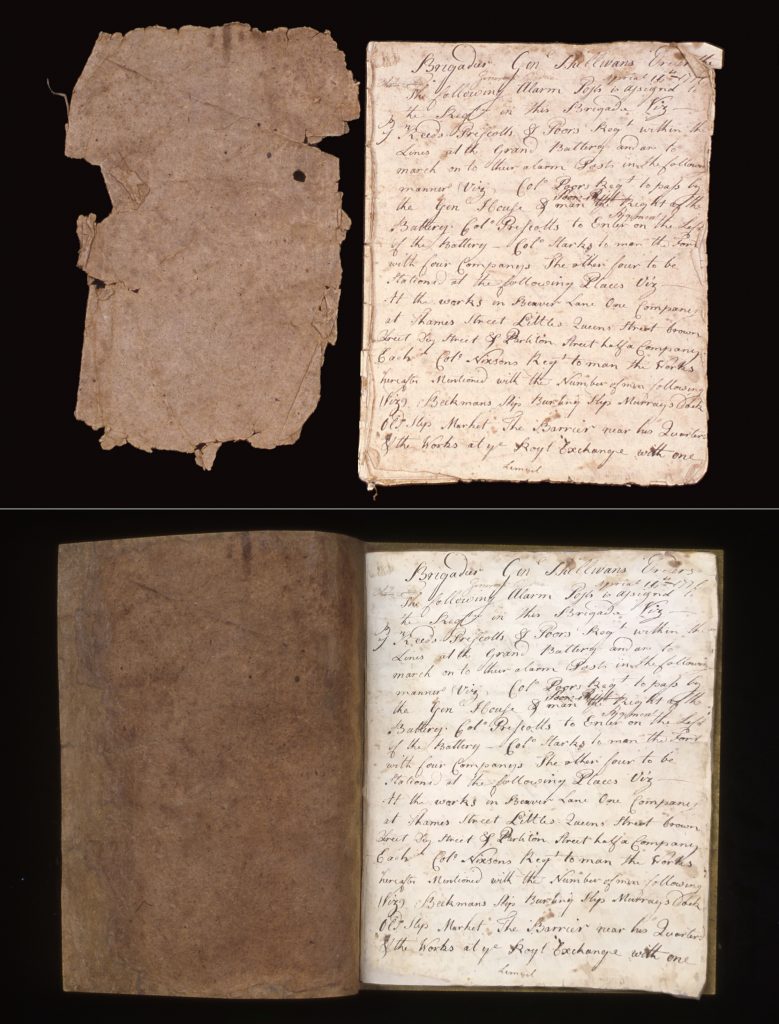 Brigadier Genl Sullivans Orders
April 16th 1776
The following Alarm Posts is assigned to
the Regts in this Brigade Viz
Reeds Prescotts & Poors Regt within the
Lines at the Grand Battery and are to
march on to their alarm Posts in the following
manner Viz Colo Poors Regt to pass by
the Genl House & man the Right of the
Battery. Colo Prescotts to Enter on the Left
of the Battery — Colo Starks to man the Fort
with four Companys The other four to be
Stationd at the following Places Viz —
At the works in Beaver Lane One Company
at Thames Street Little Queens Street brown
Street Dey Street & Partiton Street half a Company
Each Colo Nixsons Regt to man the Works
hereafter Mentioned with the Number of men following
(Viz) Beekmans Slip Burling Slip Murrays Dock
Old Slip Market The Barrier near his Quarters
& the Works at ye Royl Exchange with one
Brigadier Genl Sullivans Orders
April 16th 1776
The following Alarm Posts is assigned to
the Regts in this Brigade Viz
Reeds Prescotts & Poors Regt within the
Lines at the Grand Battery and are to
march on to their alarm Posts in the following
manner Viz Colo Poors Regt to pass by
the Genl House & man the Right of the
Battery. Colo Prescotts to Enter on the Left
of the Battery — Colo Starks to man the Fort
with four Companys The other four to be
Stationd at the following Places Viz —
At the works in Beaver Lane One Company
at Thames Street Little Queens Street brown
Street Dey Street & Partiton Street half a Company
Each Colo Nixsons Regt to man the Works
hereafter Mentioned with the Number of men following
(Viz) Beekmans Slip Burling Slip Murrays Dock
Old Slip Market The Barrier near his Quarters
& the Works at ye Royl Exchange with one